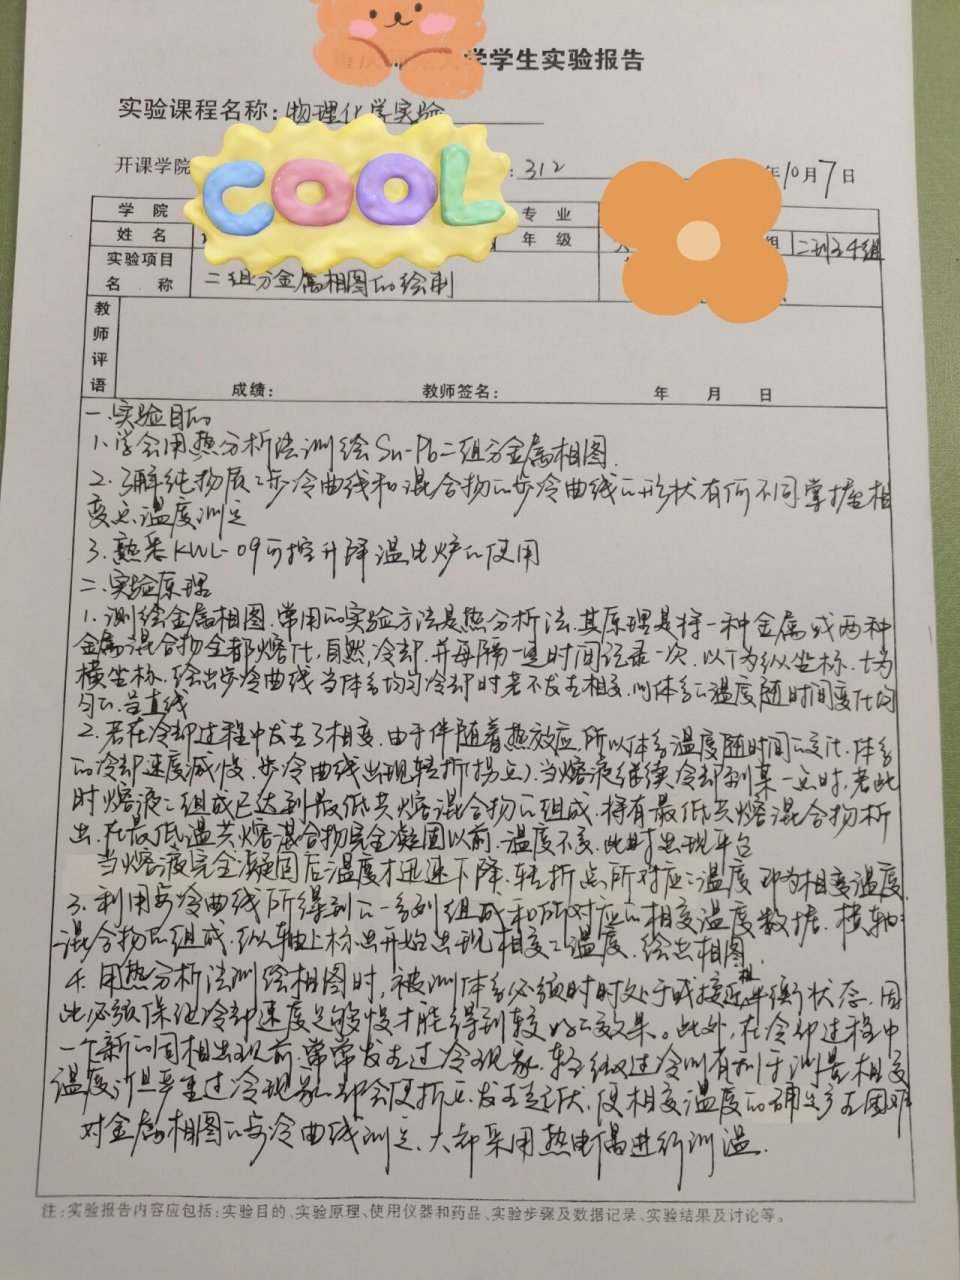 学学生实验报告
实验课程名称：物理化学实验
COOL
开课学院 ：312 年10月7日
学 院 专 业
姓 名 年 级 组 二班24组
实验项目名 称 二组分金属相图的绘制
教师评语
成绩： 教师签名： 年 月 日
一.实验目的
1.学会用热分析法测绘Sn-Pb二组分金属相图.
2.了解纯物质之步冷曲线和混合物的步冷曲线的形状有何不同.掌握相
变点温度测定
3.熟悉KWL-09可控升降温电炉的使用
二.实验原理
1.测绘金属相图.常用的实验方法是热分析法.其原理是将一种金属或两种
金属混合物全都熔化,自然冷却.并每隔一定时间记录一次.以T为纵坐标.t为
横坐标.绘出步冷曲线.当体系均匀冷却时若不发生相变.则体系之温度随时间变化均
匀的.呈直线
2.若在冷却过程中发生了相变.由于伴随着热效应.所以体系温度随时间的变化.体系
的冷却速度减慢.步冷曲线出现转折(拐点).当熔液继续冷却到某一点时.若此
时熔液之组成已达到最低共熔混合物的组成.将有最低共熔混合物析
出.在最低温共熔混合物完全凝固以前.温度不变.此时出现平台
当熔液完全凝固后温度才迅速下降.转折点所对应之温度即为相变温度
3.利用步冷曲线所得到的一系列组成和所对应的相变温度数据.横轴
混合物的组成.纵轴上标出开始出现相变之温度.绘出相图.
4.用热分析法测绘相图时,被测体系必须时时处于或接近相平衡状态.因
此必须保证冷却速度足够慢才能得到较好的效果。此外,在冷却过程中
一个新的固相出现前.常常发生过冷现象.轻微过冷则有利于测量相变
温度;但严重过冷现象.却会使折点发生起伏,使相变温度的确定产生困难
对金属相图的步冷曲线测定、大都采用热电偶进行测温.
注:实验报告内容应包括:实验目的、实验原理、使用仪器和药品、实验步骤及数据记录、实验结果及讨论等。